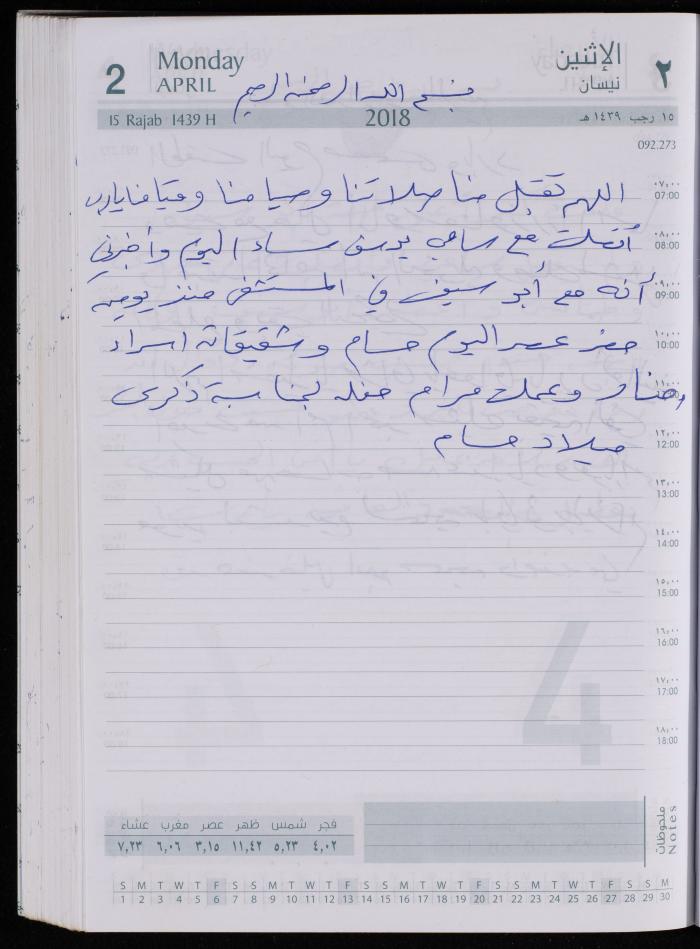 2 Monday الإثنين ٢
APRIL نيسان
بسم الله الرحمن الرحيم
15 Rajab 1439 H 2018 ١٥ رجب ١٤٣٩ هـ
092.273
اللهم تقبل منا صلاتنا وصيامنا وقيامنا يا رب
٠٧,٠٠
07:00
اتصلت مع سامي يوسف مساء اليوم وأخبرني
٠٨,٠٠
08:00
أنه مع أبو سيف في المستشفى منذ يومين
٠٩,٠٠
09:00
حضر عصر اليوم حسام وشقيقاته اسراء
١٠,٠٠
10:00
وهناء وعملت مرام حفله بمناسبة ذكرى
١١,٠٠
ميلاد حسام
١٢,٠٠
12:00
١٣,٠٠
13:00
١٤,٠٠
14:00
١٥,٠٠
15:00
١٦,٠٠
16:00
١٧,٠٠
17:00
١٨,٠٠
18:00
4
فجر شمس ظهر عصر مغرب عشاء
٤,٠٢ ٥,٢٣ ١١,٤٢ ٣,١٥ ٦,٠٦ ٧,٢٣
ملحوظات
Notes
S M T W T F S S M T W T F S S M T W T F S S M T W T F S S M
1 2 3 4 5 6 7 8 9 10 11 12 13 14 15 16 17 18 19 20 21 22 23 24 25 26 27 28 29 30